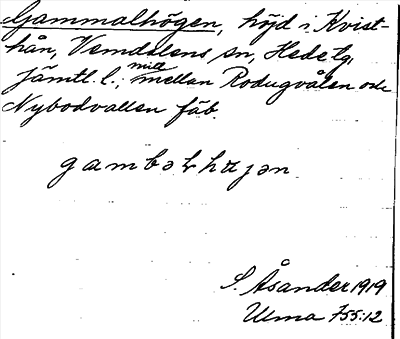 Gammalhögen, höjd i Kvist-
hån, Vemdalens sn, Hede tg,
Jämtl. l.; mitt mellan Rodugvålen och
Nybodvallen fäb.
S. Åsander 1919
Ulma 755:12